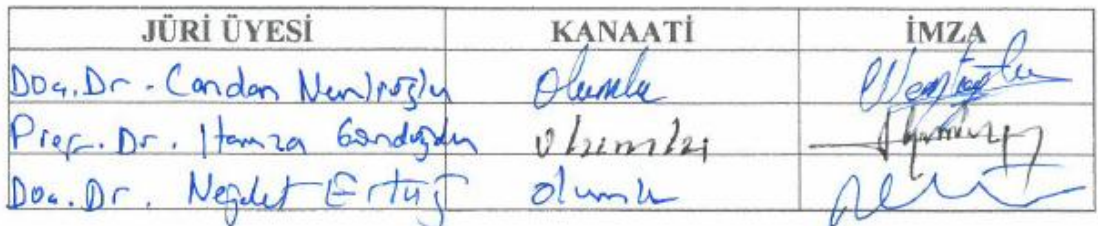 JÜRİ ÜYESİ KANAATİ İMZA
Doç. Dr. Candan Nemlioğlu Olumlu
Prof. Dr. Hamza Gündoğdu Olumlu
Doç. Dr. Nejdet Ertuğ olumlu